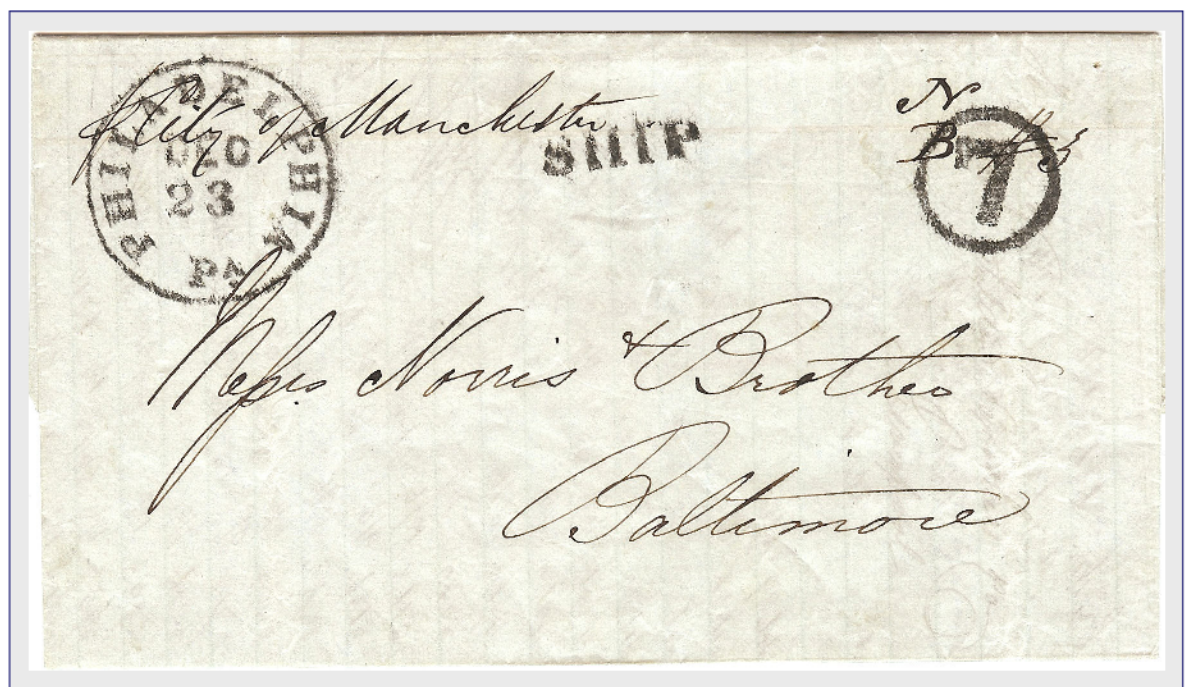 PHILADELPHIA PA
DEC
23
City of Manchester
SHIP
N
B
7
Messrs Norris & Brother
Baltimore